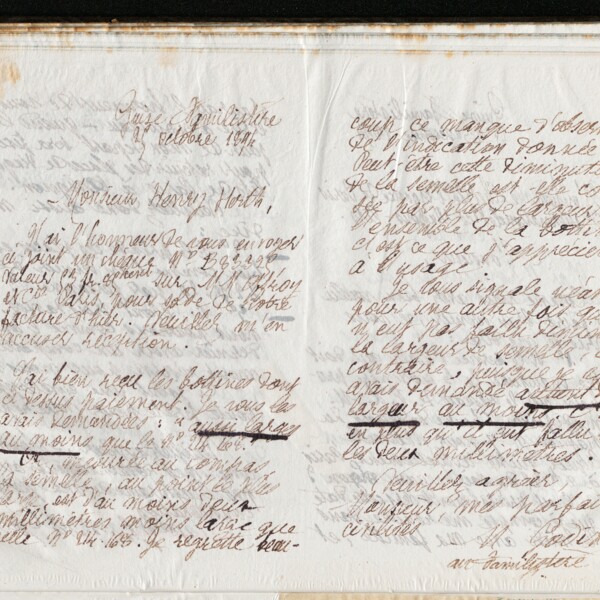 Guise Familistère
25 octobre 1894
Monsieur Henry Horth,
J'ai l'honneur de vous envoyer
ci joint un chèque N°
valeur sur MM. Offroy
et Cie Paris, pour solde de votre
facture d'hier. Veuillez m'en
accuser réception.
J'ai bien reçu les bottines dont
ci dessus paiement. Je vous les
avais demandées : aussi larges
au moins que le N° 214.163.
mesurée au compas
la semelle, au point le plus
large est d'au moins deux
millimètres moins large que
celle N° 214.163. Je regrette beau-
coup ce manque d'obser
de l'indication donnée
Peut-être cette diminuti
de la semelle est elle co
sée par plus de largeur
l'ensemble de la botti
c'est ce que j'apprécie
à l'usage.
Je vous signale néan
pour une autre fois qu
n'eut pas fallu dimin
la largeur de semelle,
contraire, puisque je
avais demandé autant
largeur au moins
en plus qu'il eut fallu
les deux millimètres.
Veuillez agréer,
Monsieur, mes parfai
civilités
M. Godin
au Familistère